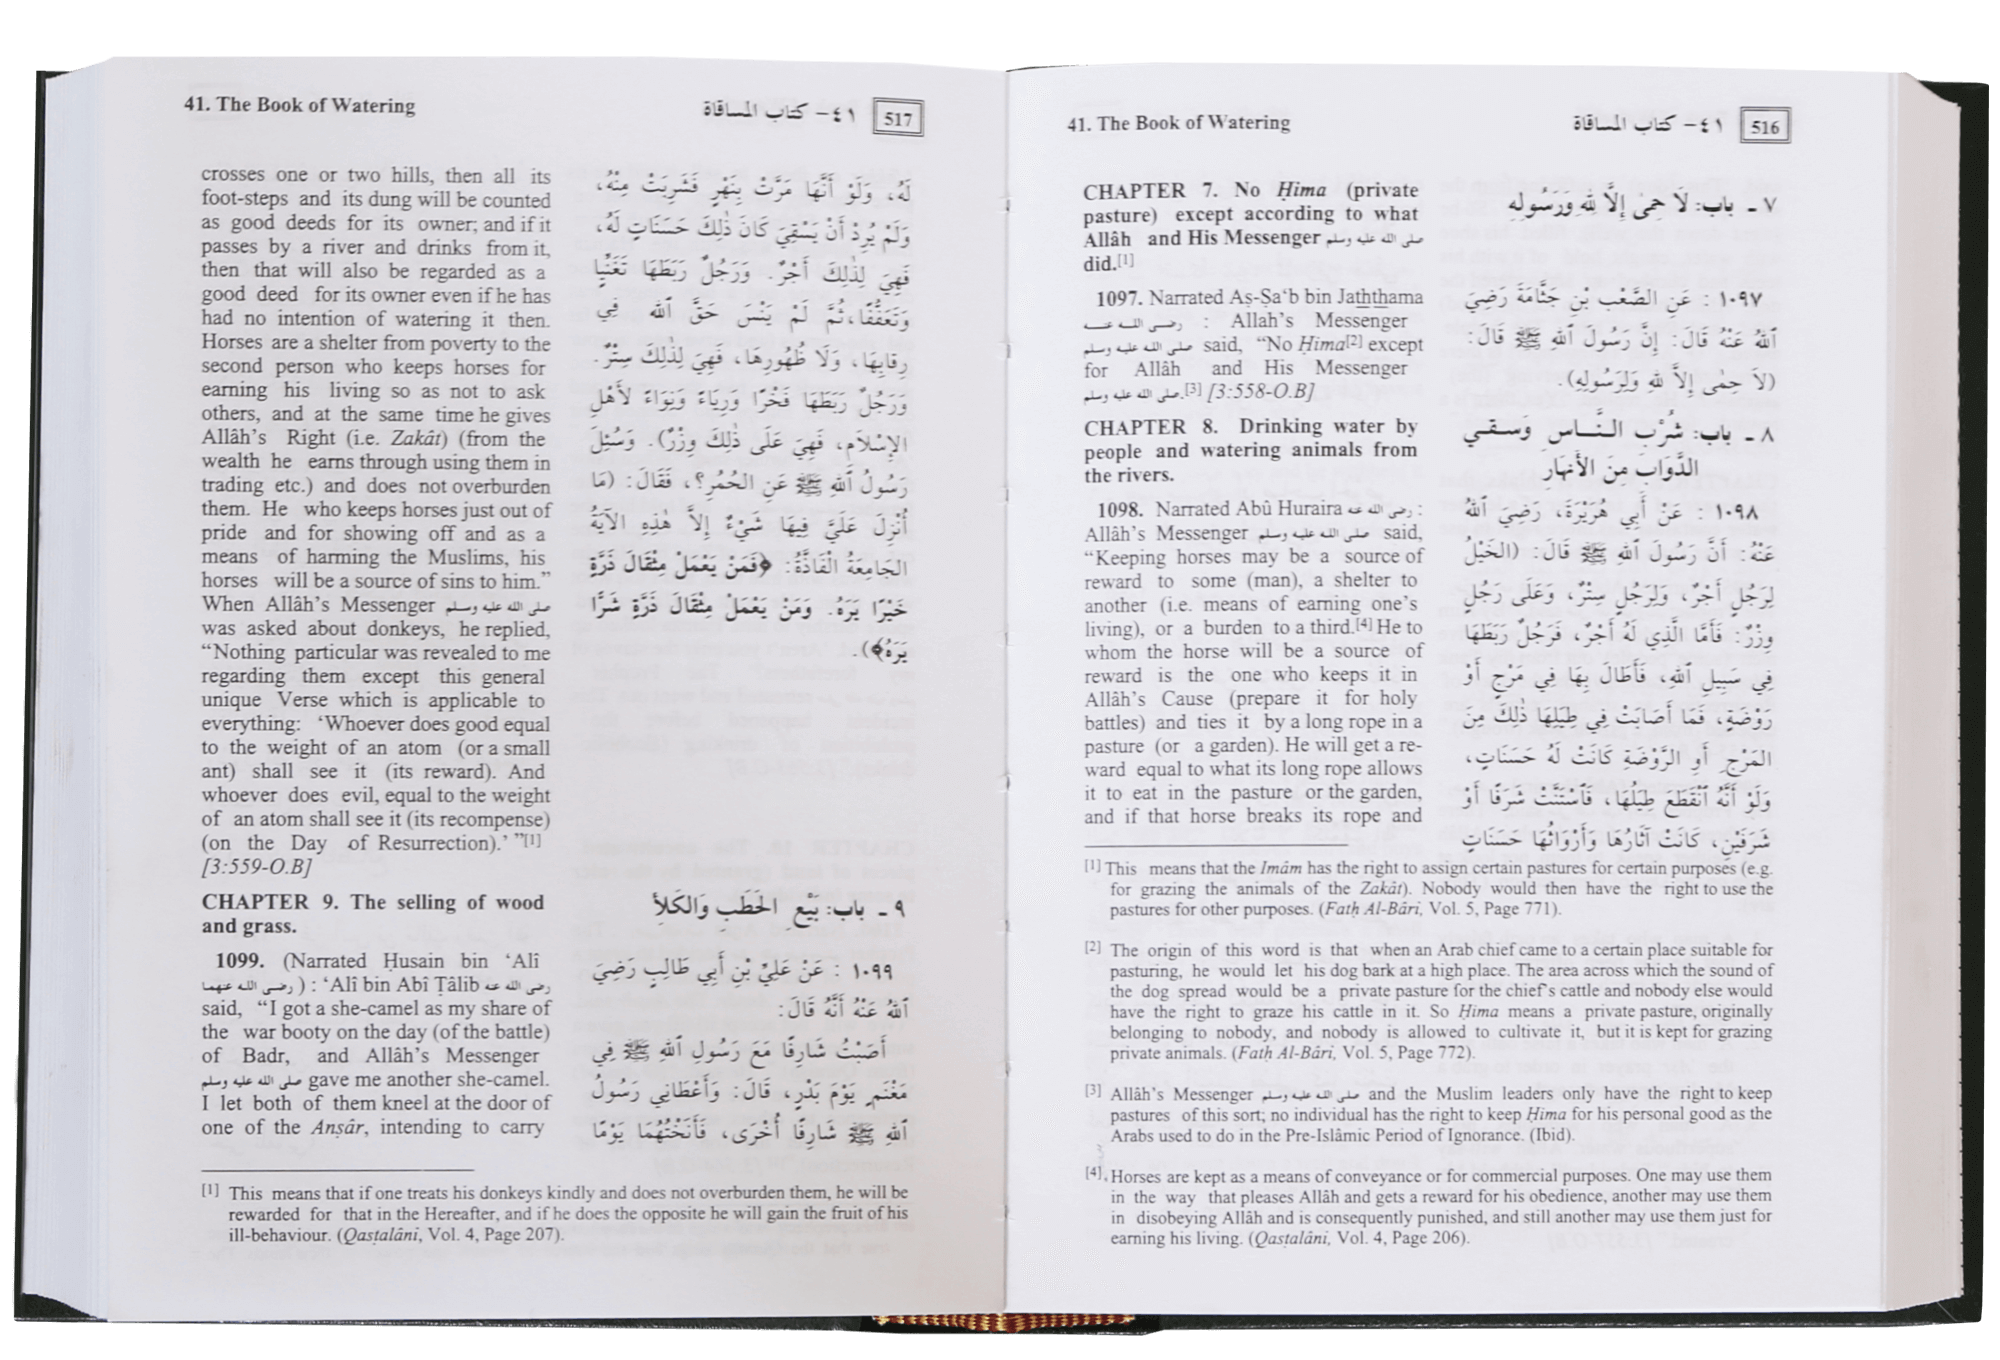 41. The Book of Watering
٤١- كتاب المساقاة
516
CHAPTER 7. No Ḥima (private
pasture) except according to what
Allâh and His Messenger صلى الله عليه وسلم
did.[1]
1097. Narrated Aṣ-Ṣa‘b bin Jaththama
رضي الله عنه : Allah's Messenger
صلى الله عليه وسلم said, “No Ḥima[2] except
for Allâh and His Messenger
صلى الله عليه وسلم.[3] [3:558-O.B]
CHAPTER 8. Drinking water by
people and watering animals from
the rivers.
1098. Narrated Abû Huraira رضي الله عنه :
Allâh's Messenger صلى الله عليه وسلم said,
“Keeping horses may be a source of
reward to some (man), a shelter to
another (i.e. means of earning one's
living), or a burden to a third.[4] He to
whom the horse will be a source of
reward is the one who keeps it in
Allâh's Cause (prepare it for holy
battles) and ties it by a long rope in a
pasture (or a garden). He will get a re-
ward equal to what its long rope allows
it to eat in the pasture or the garden,
and if that horse breaks its rope and
٧ ـ باب: لَا حِمَىٰ إِلاَّ لِلهِ وَرَسُولِهِ
١٠٩٧ : عَنِ الصَّعْبِ بْنِ جَثَّامَةَ رَضِيَ
ٱللهُ عَنْهُ قَالَ: إِنَّ رَسُولَ ٱللهِ ﷺ قَالَ:
(لاَ حِمَى إِلاَّ لِلهِ وَلِرَسُولِهِ).
٨ ـ باب: شُرْبِ النَّاسِ وَسقي
الدَّوَاب مِنَ الأَنهَارِ
١٠٩٨ : عَنْ أَبِي هُرَيْرَةَ، رَضِيَ ٱللهُ
عَنْهُ: أَنَّ رَسُولَ ٱللهِ ﷺ قَالَ: (الخَيْلُ
لِرَجُلٍ أَجْرٌ، وَلِرَجُلٍ سِتْرٌ، وَعَلَى رَجُلٍ
وِزْرٌ: فَأَمَّا الَّذِي لَهُ أَجْرٌ، فَرَجُلٌ رَبَطَهَا
فِي سَبِيلِ ٱللهِ، فَأَطَالَ بِهَا فِي مَرْجٍ أَوْ
رَوْضَةٍ، فَمَا أَصَابَتْ فِي طِيَلِهَا ذٰلِكَ مِنَ
المَرْجِ أَوِ الرَّوْضَةِ كَانَتْ لَهُ حَسَنَاتٍ،
وَلَوْ أَنَّهُ ٱنْقَطَعَ طِيَلُهَا، فَٱسْتَنَّتْ شَرَفًا أَوْ
شَرَفَيْنِ، كَانَتْ آثَارُهَا وَأَرْوَاثُهَا حَسَنَاتٍ
[1] This means that the Imâm has the right to assign certain pastures for certain purposes (e.g.
for grazing the animals of the Zakât). Nobody would then have the right to use the
pastures for other purposes. (Fatḥ Al-Bâri, Vol. 5, Page 771).
[2] The origin of this word is that when an Arab chief came to a certain place suitable for
pasturing, he would let his dog bark at a high place. The area across which the sound of
the dog spread would be a private pasture for the chief's cattle and nobody else would
have the right to graze his cattle in it. So Ḥima means a private pasture, originally
belonging to nobody, and nobody is allowed to cultivate it, but it is kept for grazing
private animals. (Fatḥ Al-Bâri, Vol. 5, Page 772).
[3] Allâh's Messenger صلى الله عليه وسلم and the Muslim leaders only have the right to keep
pastures of this sort; no individual has the right to keep Ḥima for his personal good as the
Arabs used to do in the Pre-Islâmic Period of Ignorance. (Ibid).
[4] Horses are kept as a means of conveyance or for commercial purposes. One may use them
in the way that pleases Allâh and gets a reward for his obedience, another may use them
in disobeying Allâh and is consequently punished, and still another may use them just for
earning his living. (Qasṭalâni, Vol. 4, Page 206).
41. The Book of Watering
٤١- كتاب المساقاة
517
crosses one or two hills, then all its
foot-steps and its dung will be counted
as good deeds for its owner; and if it
passes by a river and drinks from it,
then that will also be regarded as a
good deed for its owner even if he has
had no intention of watering it then.
Horses are a shelter from poverty to the
second person who keeps horses for
earning his living so as not to ask
others, and at the same time he gives
Allâh's Right (i.e. Zakât) (from the
wealth he earns through using them in
trading etc.) and does not overburden
them. He who keeps horses just out of
pride and for showing off and as a
means of harming the Muslims, his
horses will be a source of sins to him.”
When Allâh's Messenger صلى الله عليه وسلم
was asked about donkeys, he replied,
“Nothing particular was revealed to me
regarding them except this general
unique Verse which is applicable to
everything: ‘Whoever does good equal
to the weight of an atom (or a small
ant) shall see it (its reward). And
whoever does evil, equal to the weight
of an atom shall see it (its recompense)
(on the Day of Resurrection).’ ”[1]
[3:559-O.B]
لَهُ، وَلَوْ أَنَّهَا مَرَّتْ بِنَهْرٍ فَشَرِبَتْ مِنْهُ،
وَلَمْ يُرِدْ أَنْ يَسْقِيَ كَانَ ذٰلِكَ حَسَنَاتٍ لَهُ،
فَهِيَ لِذٰلِكَ أَجْرٌ. وَرَجُلٌ رَبَطَهَا تَغَنِّيًا
وَتَعَفُّفًا، ثُمَّ لَمْ يَنْسَ حَقَّ ٱللهِ فِي
رِقابِهَا، وَلَا ظُهُورِهَا، فَهِيَ لِذٰلِكَ سِتْرٌ.
وَرَجُلٌ رَبَطَهَا فَخْرًا وَرِيَاءً وَنِوَاءً لأَهْلِ
الإِسْلاَمِ، فَهِيَ عَلَى ذٰلِكَ وِزْرٌ). وَسُئِلَ
رَسُولُ ٱللهِ ﷺ عَنِ الحُمُرِ؟، فَقَالَ: (مَا
أُنْزِلَ عَلَيَّ فِيهَا شَيْءٌ إِلاَّ هٰذِهِ الآيَةُ
الجَامِعَةُ الْفَاذَّةُ: ﴿فَمَنْ يَعْمَلْ مِثْقَالَ ذَرَّةٍ
خَيْرًا يَرَهُ. وَمَنْ يَعْمَلْ مِثْقَالَ ذَرَّةٍ شَرًّا
يَرَهُ﴾).
CHAPTER 9. The selling of wood
and grass.
٩ ـ باب: بَيْعِ الحَطَبِ وَالكَلأ
1099. (Narrated Ḥusain bin ‘Alî
رضي الله عنهما) : ‘Alî bin Abî Ṭâlib رضي الله عنه
said, “I got a she-camel as my share of
the war booty on the day (of the battle)
of Badr, and Allâh's Messenger
صلى الله عليه وسلم gave me another she-camel.
I let both of them kneel at the door of
one of the Anṣâr, intending to carry
١٠٩٩ : عَنْ عَلِيِّ بْنِ أَبِي طَالِبٍ رَضِيَ
ٱللهُ عَنْهُ أَنَّهُ قَالَ:
أَصَبْتُ شَارِفًا مَعَ رَسُولِ ٱللهِ ﷺ فِي
مَغْنَمِ يَوْمَ بَدْرٍ، قَالَ: وَأَعْطَانِي رَسُولُ
ٱللهِ ﷺ شَارِفًا أُخْرَى، فَأَنَخْتُهُمَا يَوْمًا
[1] This means that if one treats his donkeys kindly and does not overburden them, he will be
rewarded for that in the Hereafter, and if he does the opposite he will gain the fruit of his
ill-behaviour. (Qasṭalâni, Vol. 4, Page 207).